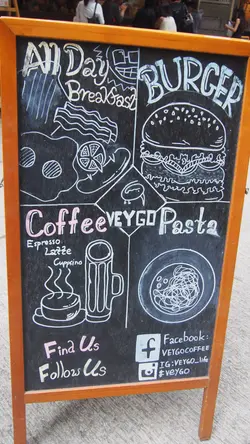 All Day
Breakfast
BURGER
Coffee
VEYGO
Pasta
Espresso
Latte
Cuppcino
Find Us
Follow Us
Facebook:
VEYGOCOFFEE
IG:VEYGO_life
#VEYGO